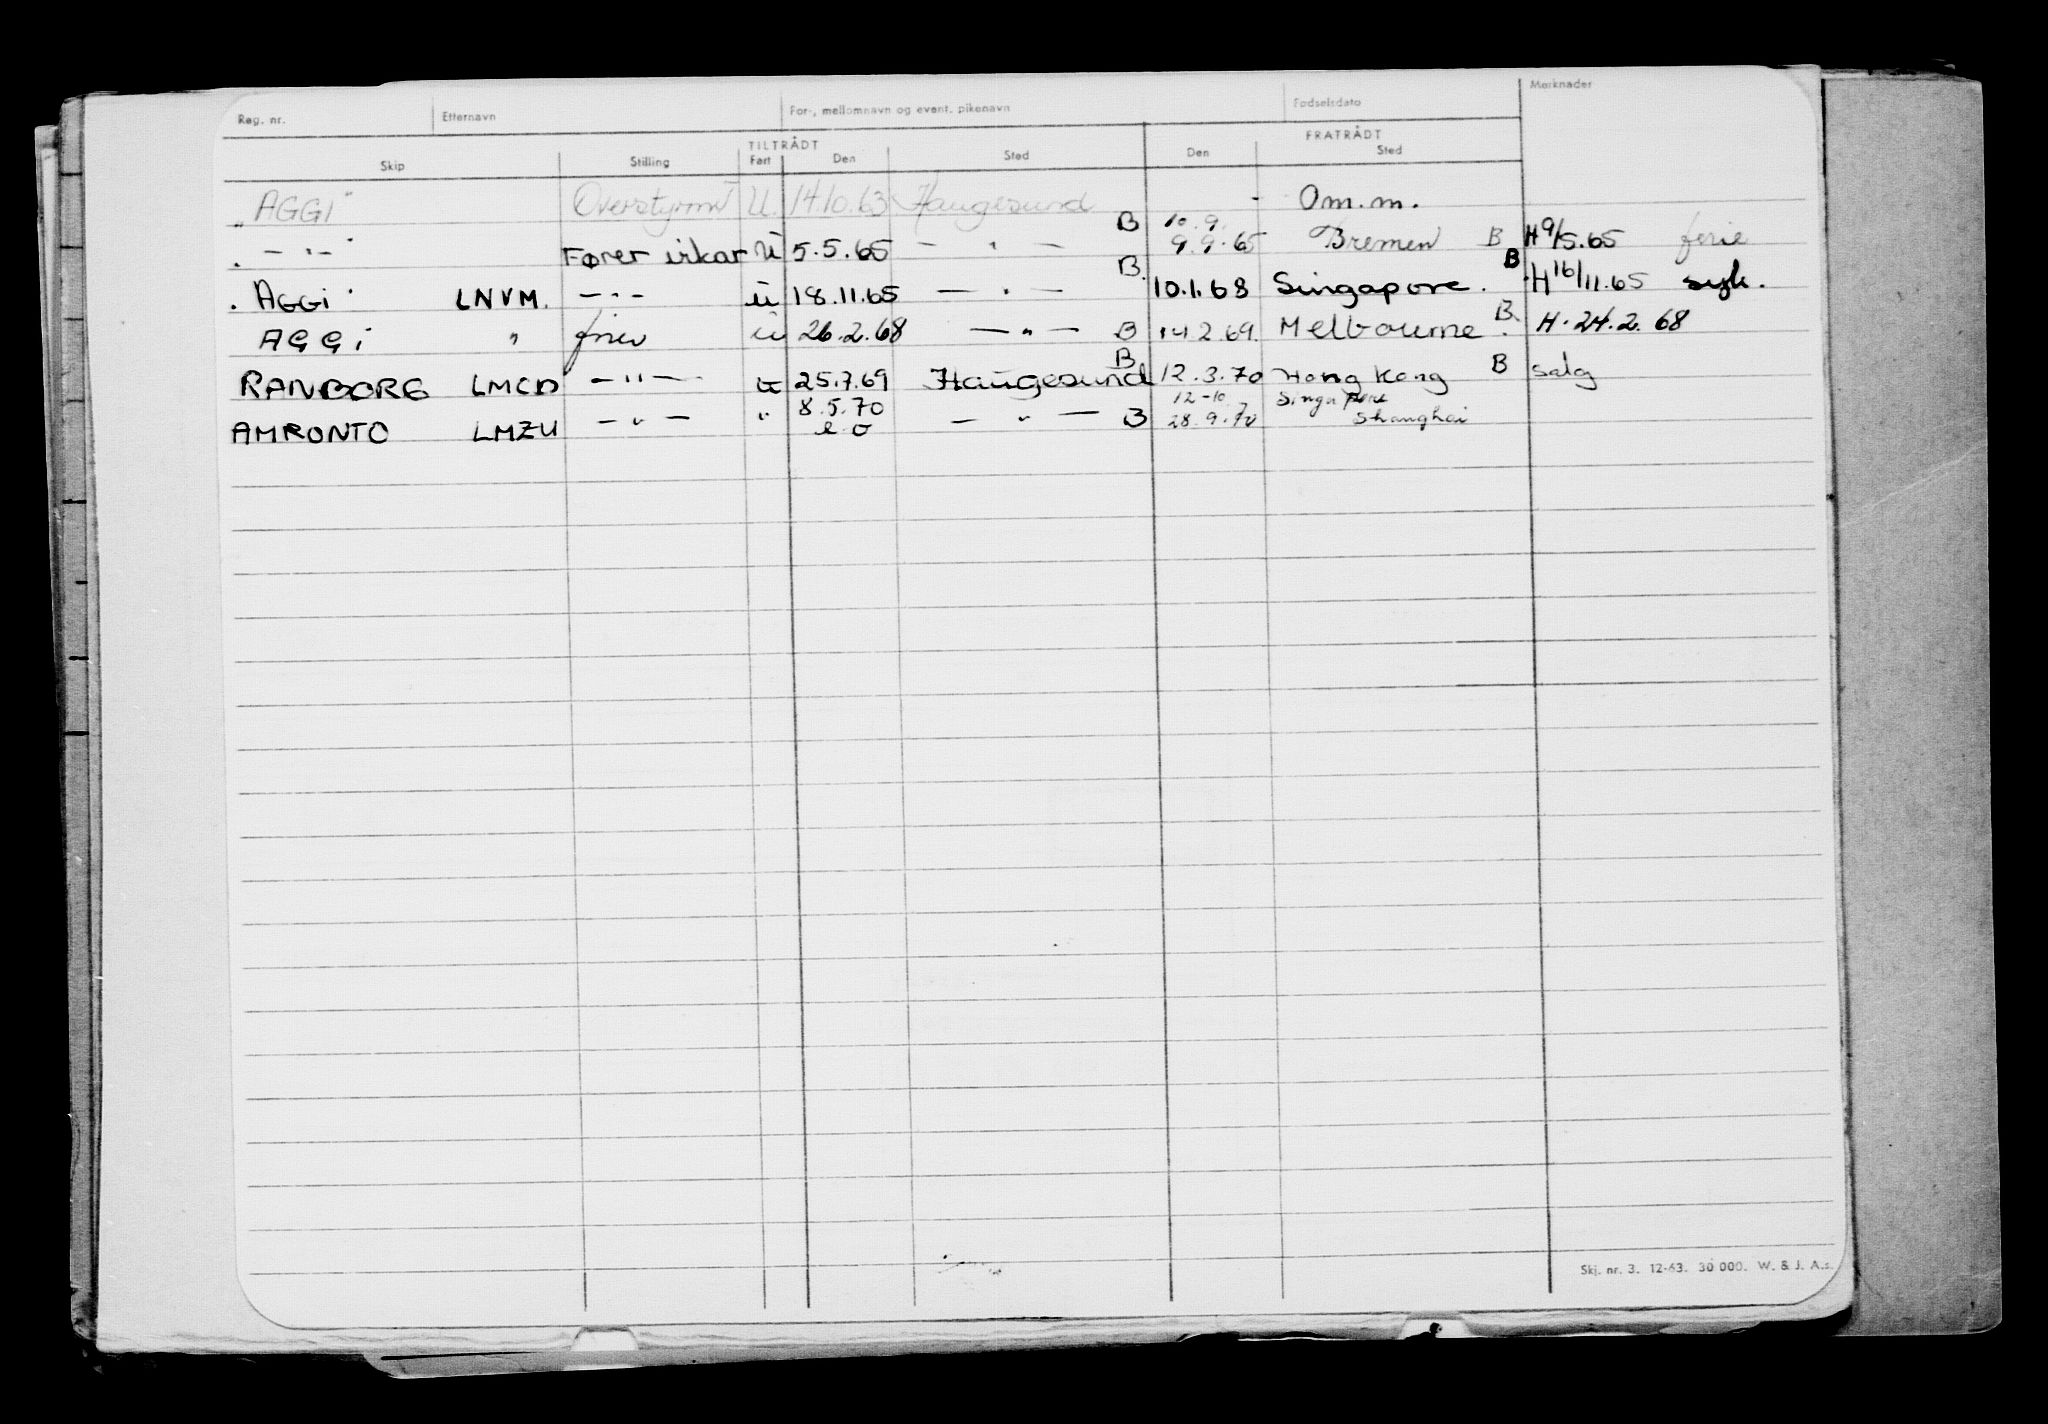 Reg. nr. Etternavn For-, mellomnavn og event. pikenavn Fødselsdato Merknader
TILTRÅDT FRATRÅDT
Skip Stilling Fart Den Sted Den Sted
"AGGI" Overstyrm U. 14.10.63 Haugesund - Om.m.
" - " - " Fører U 5.5.65 - " - B 10.9. 9.9.65 Bremen B H 9/5.65 ferie
"AGGI" LNVM. - " - U 18.11.65 - " - B. 10.1.68 Singapore. B H 16/11.65 syk.
AGGI " fører U 26.2.68 - " - B 14.2.69. Melbourne. B. H. 24.2.68
RANBORG LMCD - " - U 25.7.69 Haugesund B 12.3.70 Hong Kong B salg
AMRONTO LMZU - " - " 8.5.70 - " - B 12-10 Singapore
28.9.70 Shanghai
Skj. nr. 3. 12-63. 30 000. W. & J. A.s.